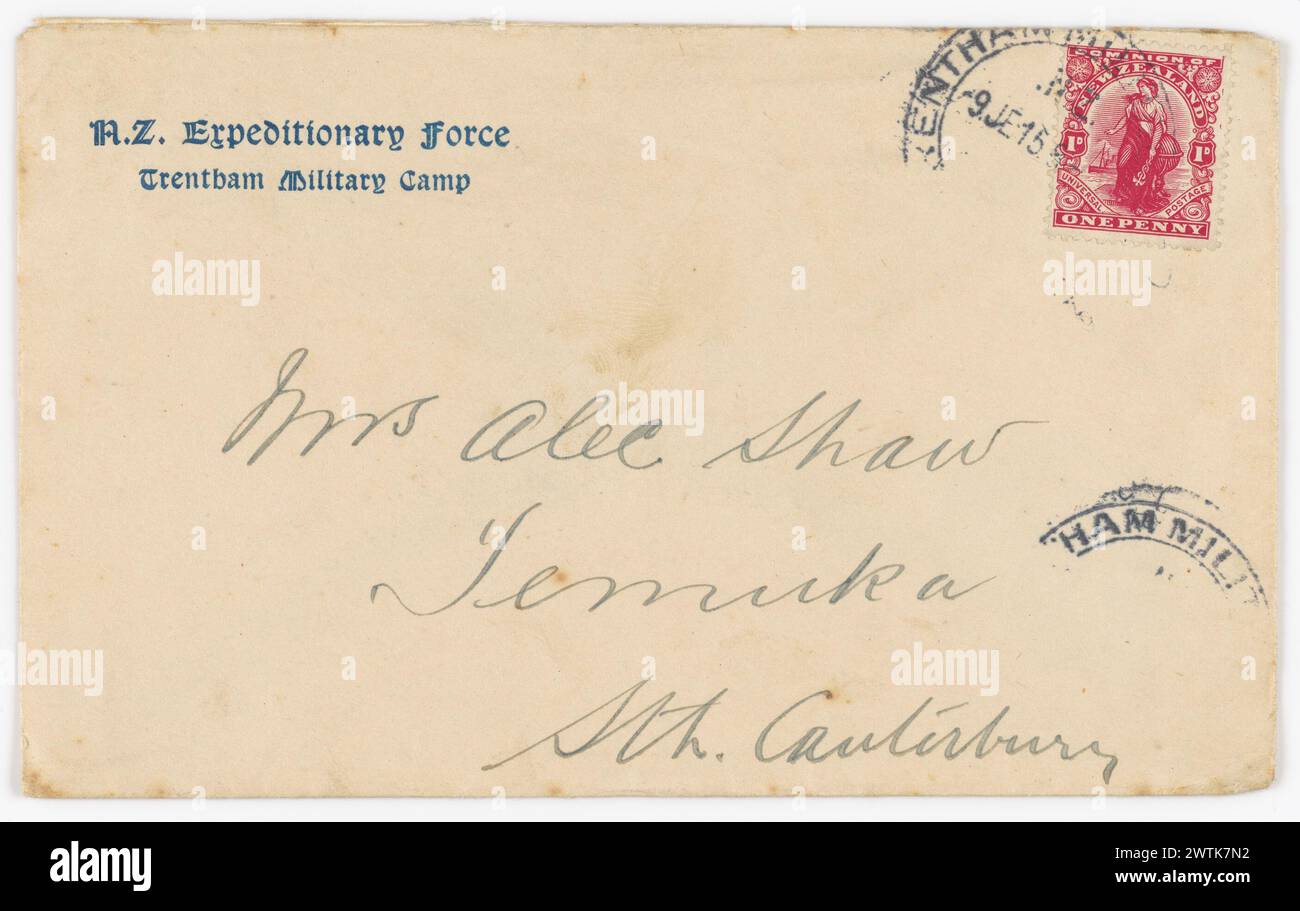 N.Z. Expeditionary Force
Trentham Military Camp
ENTHAM MIL
-9 JE 15
DOMINION OF
NEW ZEALAND
1D 1D
UNIVERSAL POSTAGE
ONE PENNY
Mrs Alec Shaw
Temuka
Sth. Canterbury
HAM MILIT
alamy
Image ID: 2WTK7N2
www.alamy.com